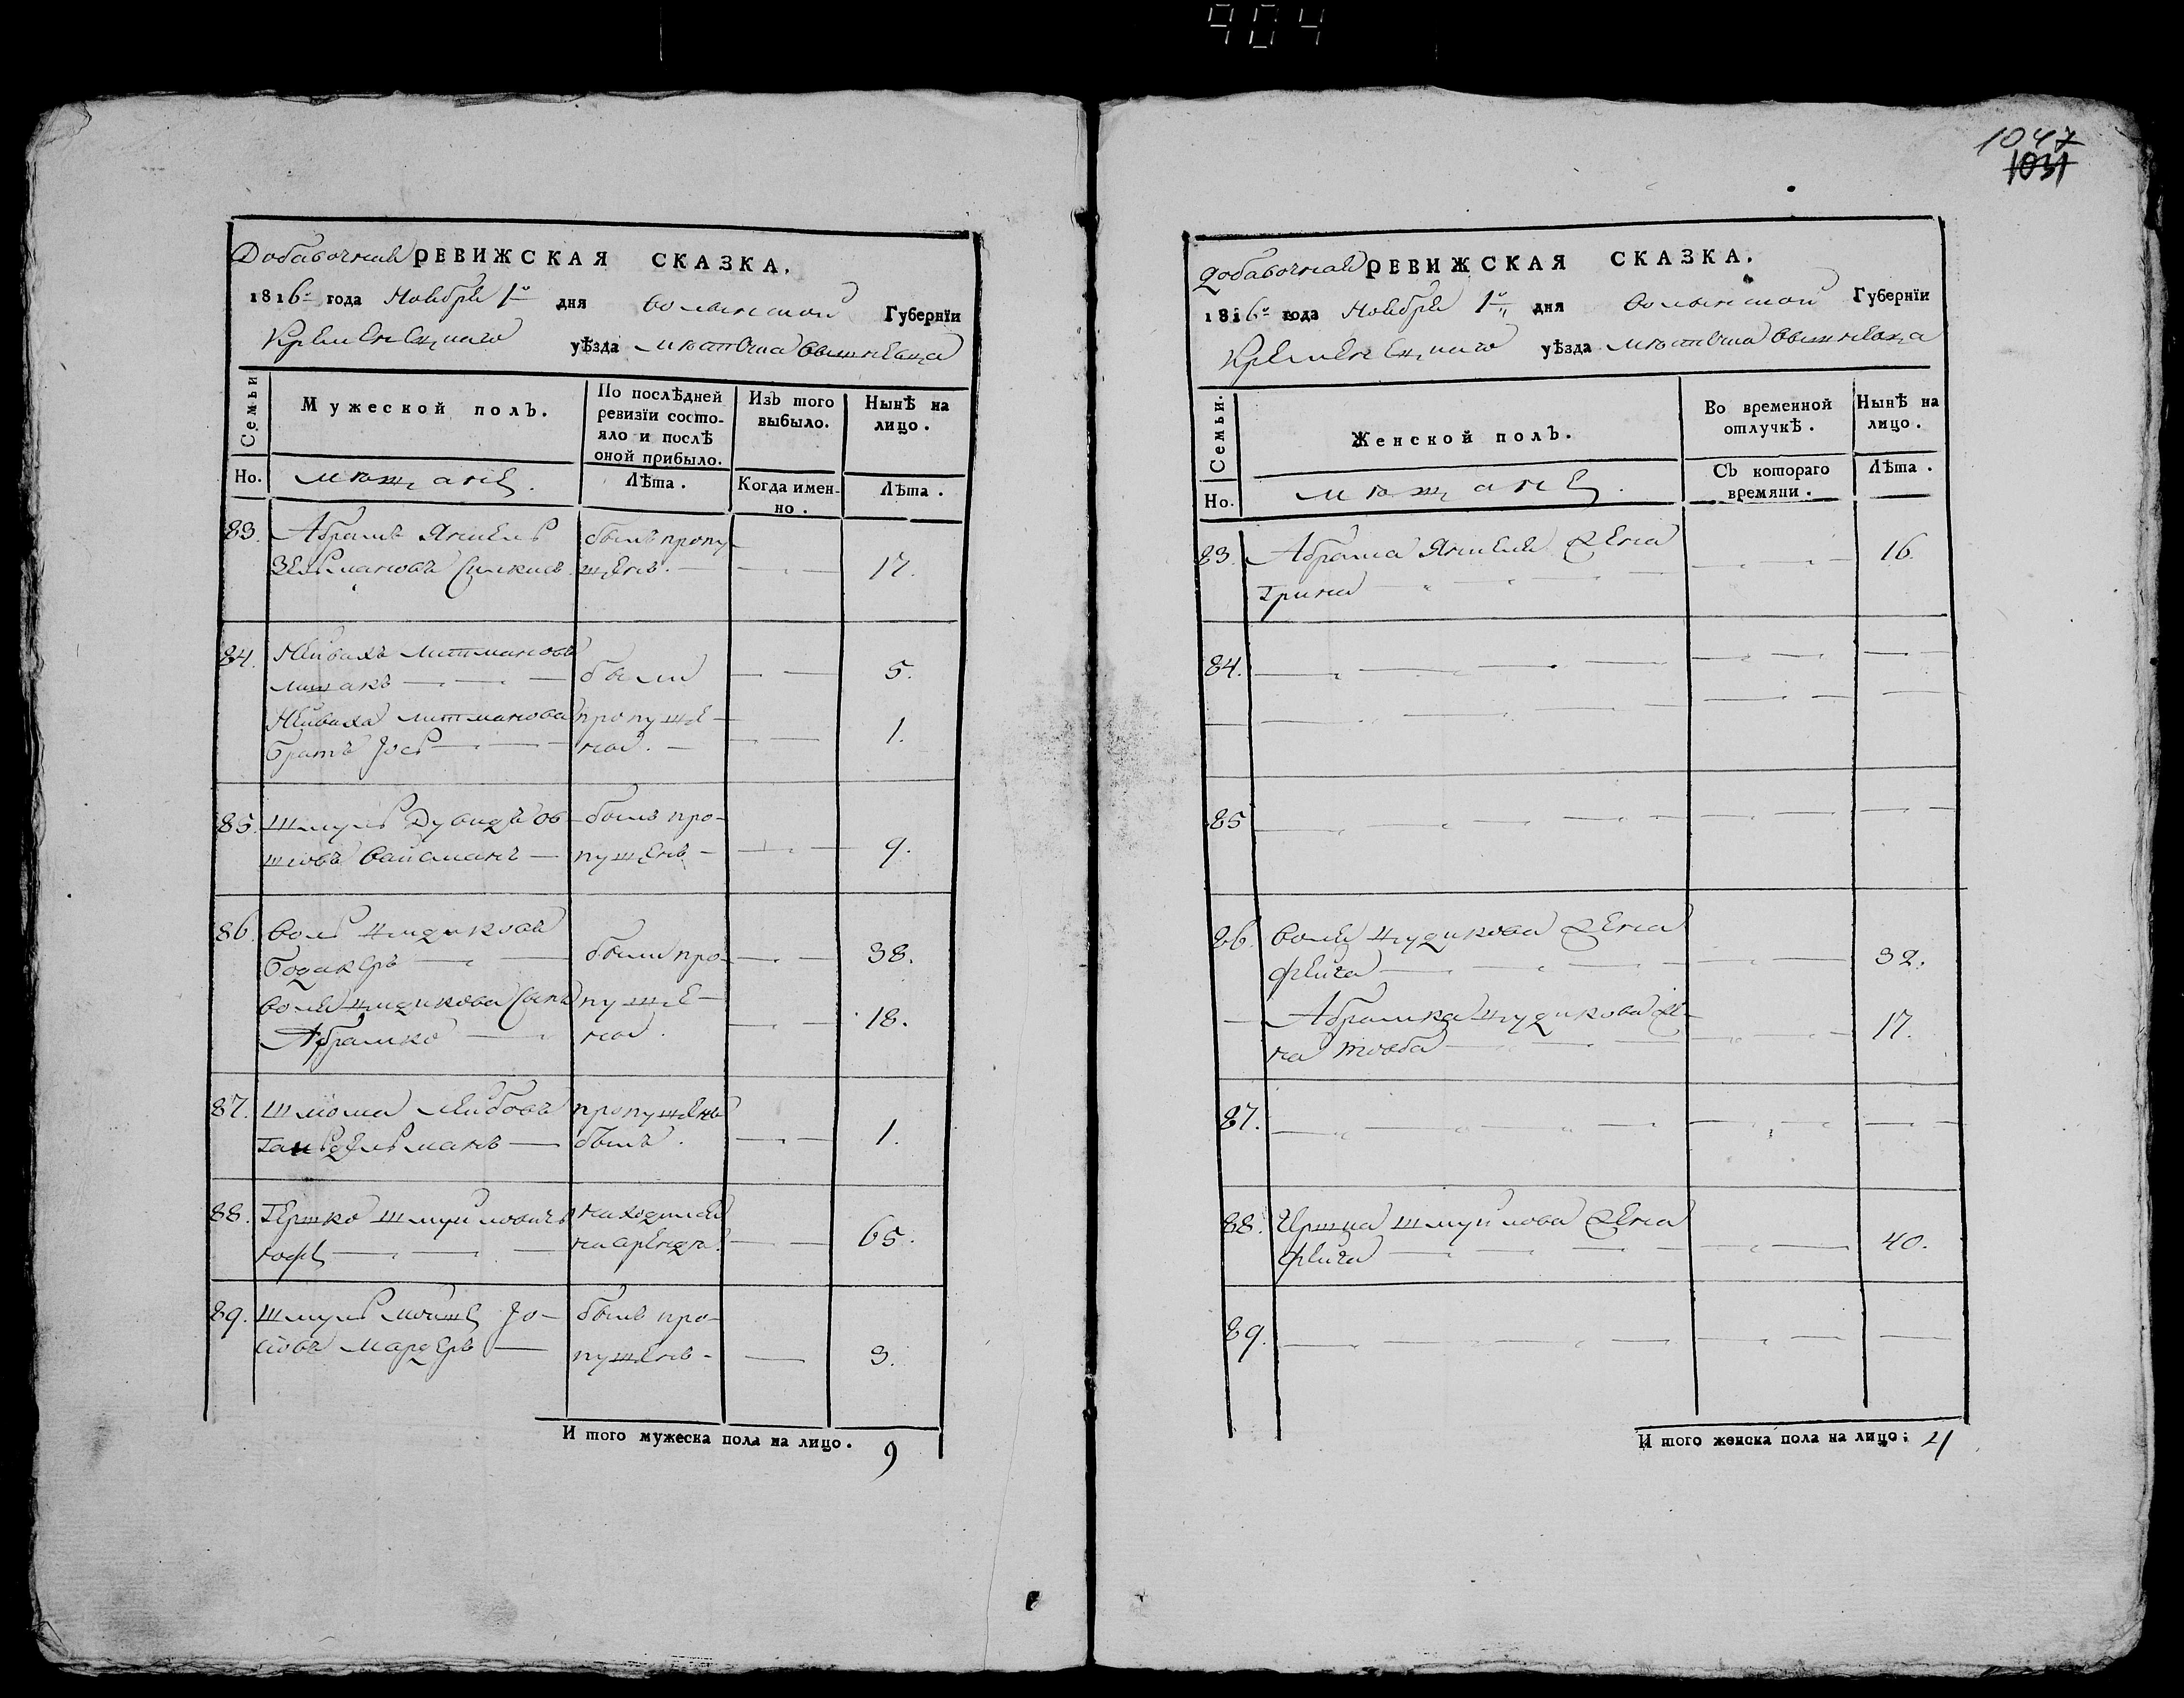 904
1047
1031
Добавочная РЕВИЖСКАЯ СКАЗКА.
1816го года Ноября 1го дня Волынской Губернїи
Кременецкаго уѣзда мѣстечка Вишневца
Семьи
Мужеской полъ.
По послѣдней ревизїи состояло и послѣ оной прибыло.
Изъ того выбыло.
Нынѣ на лицо.
Но.
мѣщане.
Лѣта.
Когда именно.
Лѣта.
83. Абрамъ Янкель былъ пропу-
Зельмановъ щенъ. 17.
84. Лейбахъ Литмановъ
были 5.
Лейбаха Литманова пропуще-
братъ Јось ны. 1.
85. Шмуль Дувидъ Ов- былъ про-
шіовъ Вайсманъ пущенъ 9.
86. Воль
Бодакеръ были про- 38.
Воля сынъ пуще-
Абрамко ны. 18.
87. Шліома Лейбовъ пропущенъ
былъ. 1.
88. Гершко Шмуйловичъ находился
на арендѣ. 65.
89. Шмуль Мошѣ Јо- былъ про-
сіовъ Мардеръ пущенъ 3.
И того мужеска пола на лицо. 9
Добавочная РЕВИЖСКАЯ СКАЗКА.
1816го года Ноября 1го дня Волынской Губернїи
Кременецкаго уѣзда мѣстечка Вишневца
Семьи.
Женской полъ.
Во временной отлучкѣ.
Нынѣ на лицо.
Но.
мѣщане.
Съ котораго времяни.
Лѣта.
83. Абрама Янкеля жена
16.
84.
85
86. Воля жена
Фейга 32.
Абрамка же-
на 17.
87.
88. Шмуйлова жена
Фейга 40.
89.
И того женска пола на лицо: 4